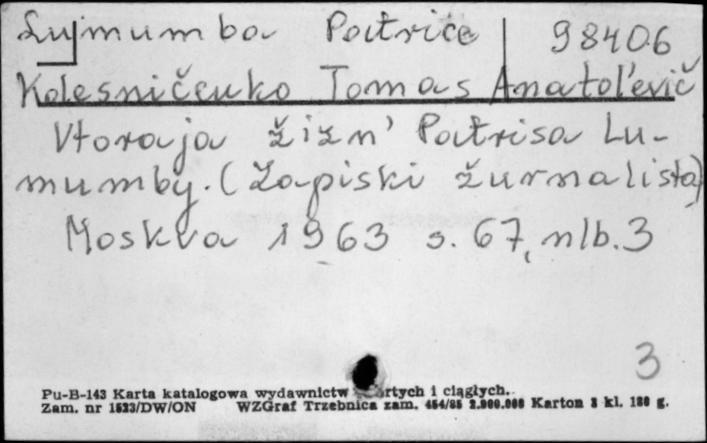 Lumumba Patrice 98406
Kolesničenko Tomas Anatol'evič
Vtoraja žizn' Patrisa Lu-
mumby. (Zapiski žurnalista)
Moskva 1963 s. 67, nlb. 3
3
Pu-B-143 Karta katalogowa wydawnictw zwartych i ciągłych.
Zam. nr 1523/DW/ON WZGraf Trzebnica zam. 454/85 2.000.000 Karton 3 kl. 180 g.